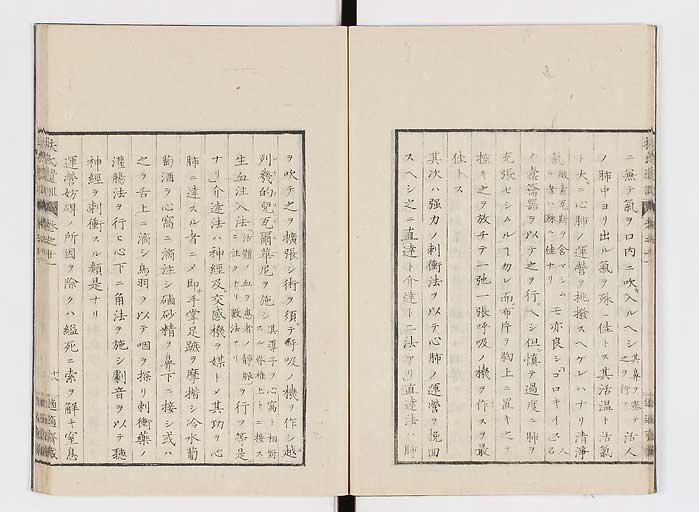 ニ無テ氣ヲ口内ニ吹入ルヘシ其鼻ヲ塞テ之ヲ行フ活人
ノ肺中ヨリ出ル氣ヲ殊ニ佳トス其活温ト活氣
ト大ニ心肺ノ運營ヲ挑撥スヘケレハナリ清淨
氣酸素瓦斯ヲ含マシム者ハ殊ニ佳ナリモ亦良シゴロキイ人名
ノ嚢籥器ヲ以テ之ヲ行ヘシ但慎テ過度ニ肺ヲ
充張セシムル勿レ而布片ヲ胸上ニ置キ之ヲ
控キ之ヲ放チテ一弛一張呼吸ノ機ヲ作スヲ最
佳トス
其次ハ强力ノ刺衝法ヲ以テ心肺ノ運營ヲ挽回
スヘシ之ニ直達ト介達ト二法アリ直達法ハ肺
ヲ吹テ之ヲ擴張シ術ヲ須テ呼吸ノ機ヲ作シ越
列幾的兒瓦爾華尼ヲ施シ其導子ヲ心窩ト相對スル脊椎上トニ接ス
生血注入法活體ノ血ヲ患者ノ靜脈ニ注クナリ數法アリヲ行フ等是
ナリ介達法ハ神經及交感機ヲ媒トメ其功ヲ心
肺ニ達スル者ニメ即手掌足蹠ヲ摩擦シ冷水葡
萄酒ヲ心窩ニ滴注シ硇砂精ヲ鼻下ニ接シ或ハ
之ヲ舌上ニ滴シ鳥羽ヲ以テ咽ヲ探リ刺衝藥ノ
灌腸法ヲ行ヒ心下ニ角法ヲ施シ劇音ヲ以テ聽
神經ヲ刺衝スル類是ナリ
運營妨碍ノ所因ヲ除クハ縊死ニ索ヲ解キ窒息
扶氏遺訓
適適齋藏